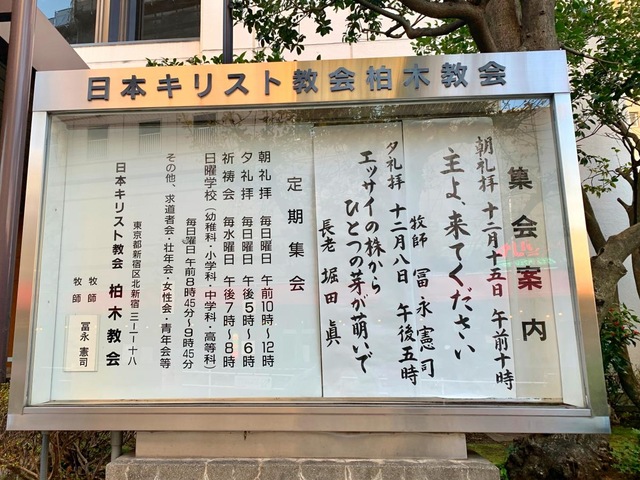 日本キリスト教会柏木教会
集会案内
朝礼拝 十二月十五日 午前十時
主よ、来てください
牧師 冨永憲司
夕礼拝 十二月八日 午後五時
エッサイの株から
ひとつの芽が萌いで
長老 堀田眞
定期集会
朝礼拝 毎日曜日 午前10時〜12時
夕礼拝 毎日曜日 午後5時〜6時
祈祷会 毎水曜日 午後7時〜8時
日曜学校(幼稚科・小学科・中学科・高等科)
毎日曜日 午前8時45分〜9時45分
その他、求道者会・壮年会・女性会・青年会等
東京都新宿区北新宿三ー二ー十八
日本キリスト教会 柏木教会
牧師
牧師 冨永 憲司